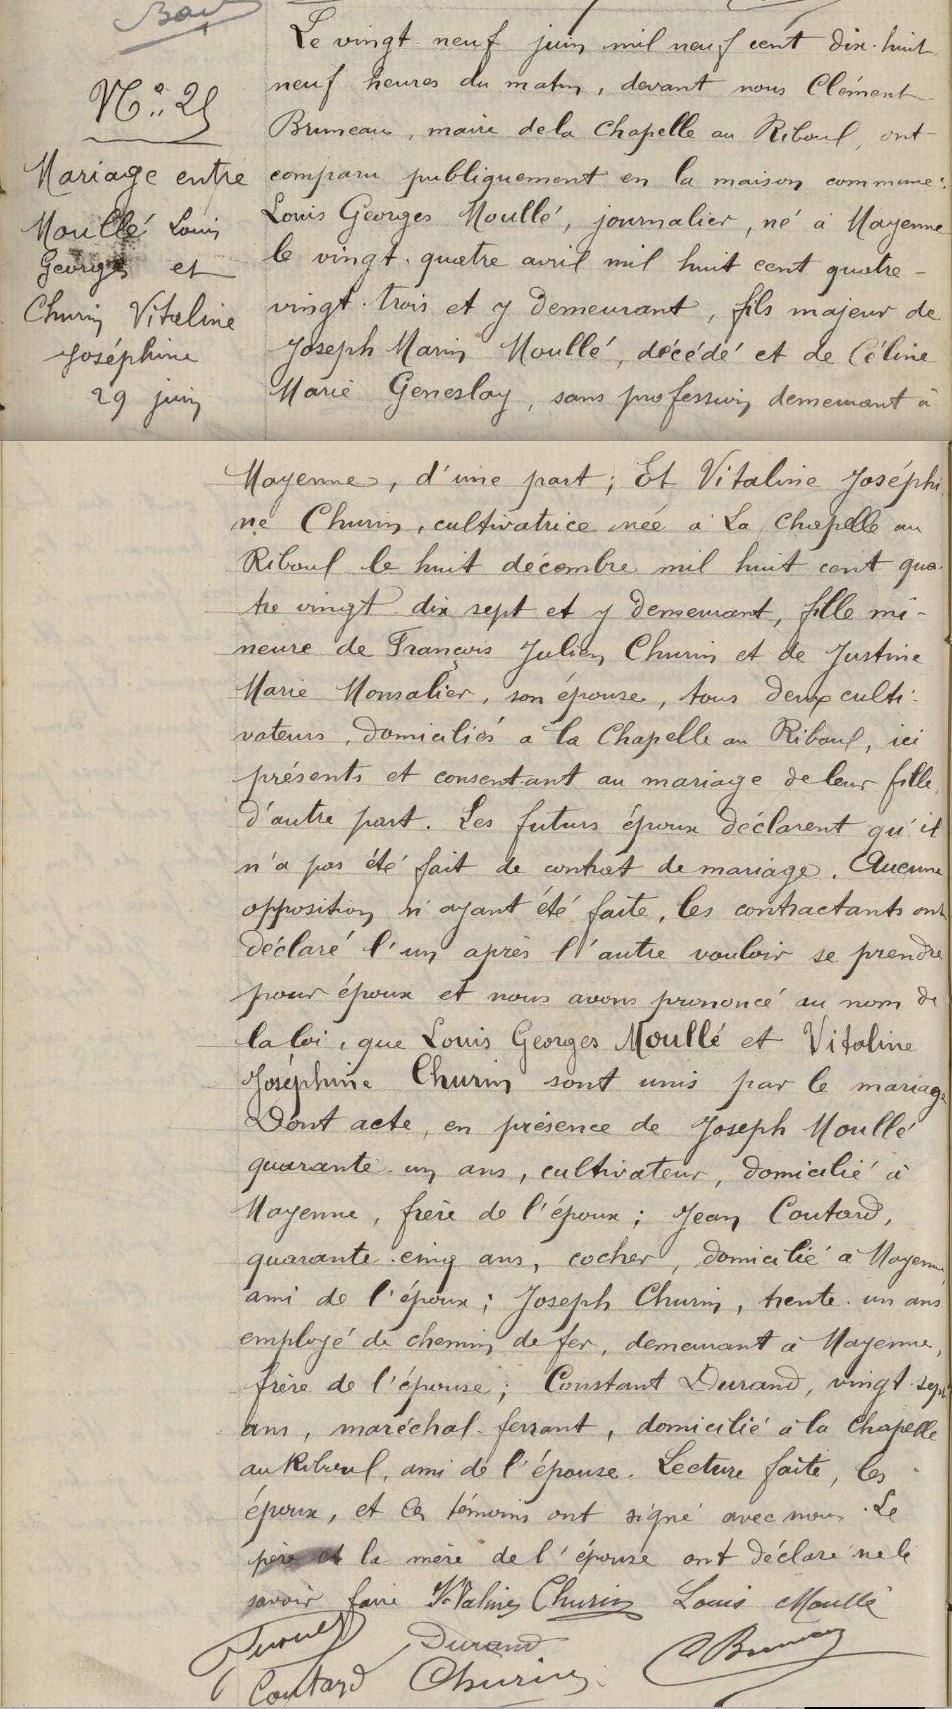 Bar
N° 25
Mariage entre
Moullé Louis
Georges et
Churin Vitaline
Joséphine
29 juin
Le vingt neuf juin mil neuf cent dix-huit
neuf heures du matin, devant nous Clément
Bruneau, maire de la Chapelle au Riboul, ont
comparu publiquement en la maison commune :
Louis Georges Moullé, journalier, né à Mayenne
le vingt-quatre avril mil huit cent quatre-
vingt-trois et y demeurant, fils majeur de
Joseph Marin Moullé, décédé et de Céline
Marie Geneslay, sans profession demeurant à
Mayenne, d'une part ; Et Vitaline Joséphi
ne Churin, cultivatrice née à La Chapelle au
Riboul le huit décembre mil huit cent qua-
tre vingt dix sept et y demeurant, fille mi-
neure de François Julien Churin et de Justine
Marie Monsalier, son épouse, tous deux culti-
vateurs, domiciliés à la Chapelle au Riboul, ici
présents et consentant au mariage de leur fille,
d'autre part. Les futurs époux déclarent qu'il
n'a pas été fait de contrat de mariage. Aucune
opposition n'ayant été faite, les contractants ont
déclaré l'un après l'autre vouloir se prendre
pour époux et nous avons prononcé au nom de
la loi, que Louis Georges Moullé et Vitaline
Joséphine Churin sont unis par le mariage
Dont acte, en présence de Joseph Moullé
quarante-un ans, cultivateur, domicilié à
Mayenne, frère de l'époux ; Jean Coutard,
quarante-cinq ans, cocher, domicilié à Mayenne
ami de l'époux ; Joseph Churin, trente-un ans
employé de chemin de fer, demeurant à Mayenne,
frère de l'épouse ; Constant Durand, vingt-sept
ans, maréchal-ferrant, domicilié à la Chapelle
au Riboul, ami de l'épouse. Lecture faite, les
époux, et les témoins ont signé avec nous. Le
père et la mère de l'épouse ont déclaré ne le
savoir faire Vitaline Churin Louis Moullé
Durand C Bruneau
Coutard Churin